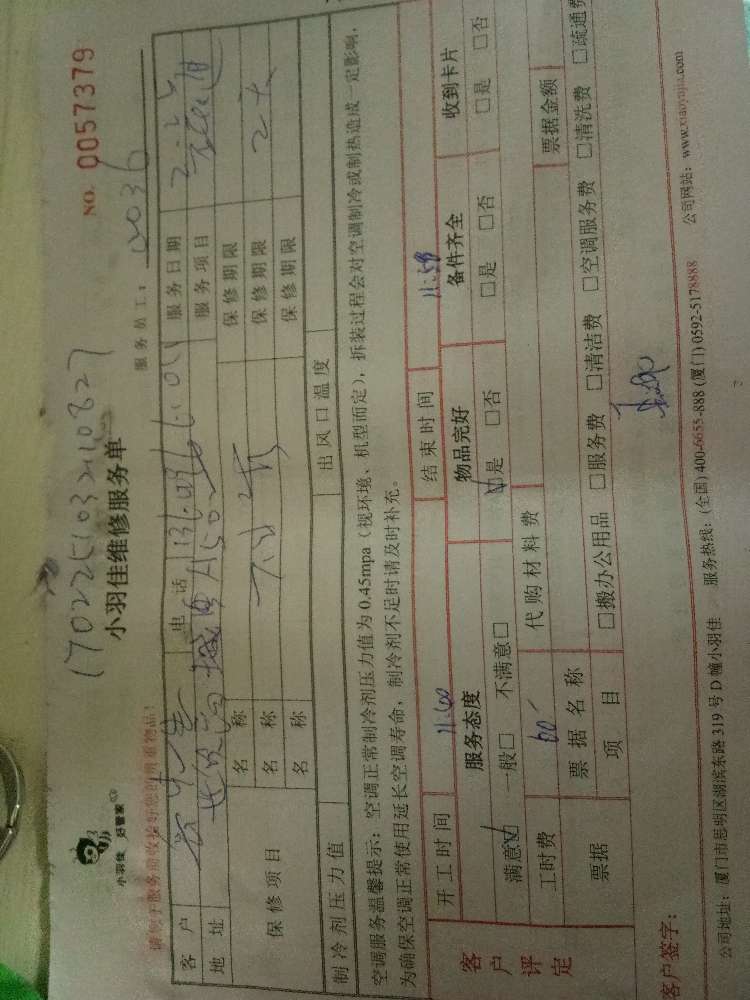 小羽佳 好管家
NO. 0057379
小羽佳维修服务单
服务员工：
请你于服务前收捡好您的贵重物品！
客户 电话 服务日期
地址 服务项目
保修项目 名称 保修期限
名称 保修期限
名称 保修期限
制冷剂压力值 出风口温度
空调服务温馨提示：空调正常制冷剂压力值为0.45mpa（视环境、机型而定），拆装过程会对空调制冷或制热造成一定影响，
为确保空调正常使用延长空调寿命，制冷剂不足时请及时补充。
客户评定
开工时间 11:00 结束时间 11:59
服务态度 物品完好 备件齐全 收到卡片
满意☑ 一般□ 不满意□ ☑是 □否 □是 □否 □是 □否
工时费 60 代购材料费
票据 票据名称 票据金额
项目 □搬办公用品 □服务费 □清洁费 □空调服务费 □清洗费 □疏通费
客户签字：
公司地址：厦门市思明区湖滨东路319号D幢小羽佳 服务热线：(全国)400-6655-888 (厦门)0592-5178888 公司网站：www.xiaoyujia.com